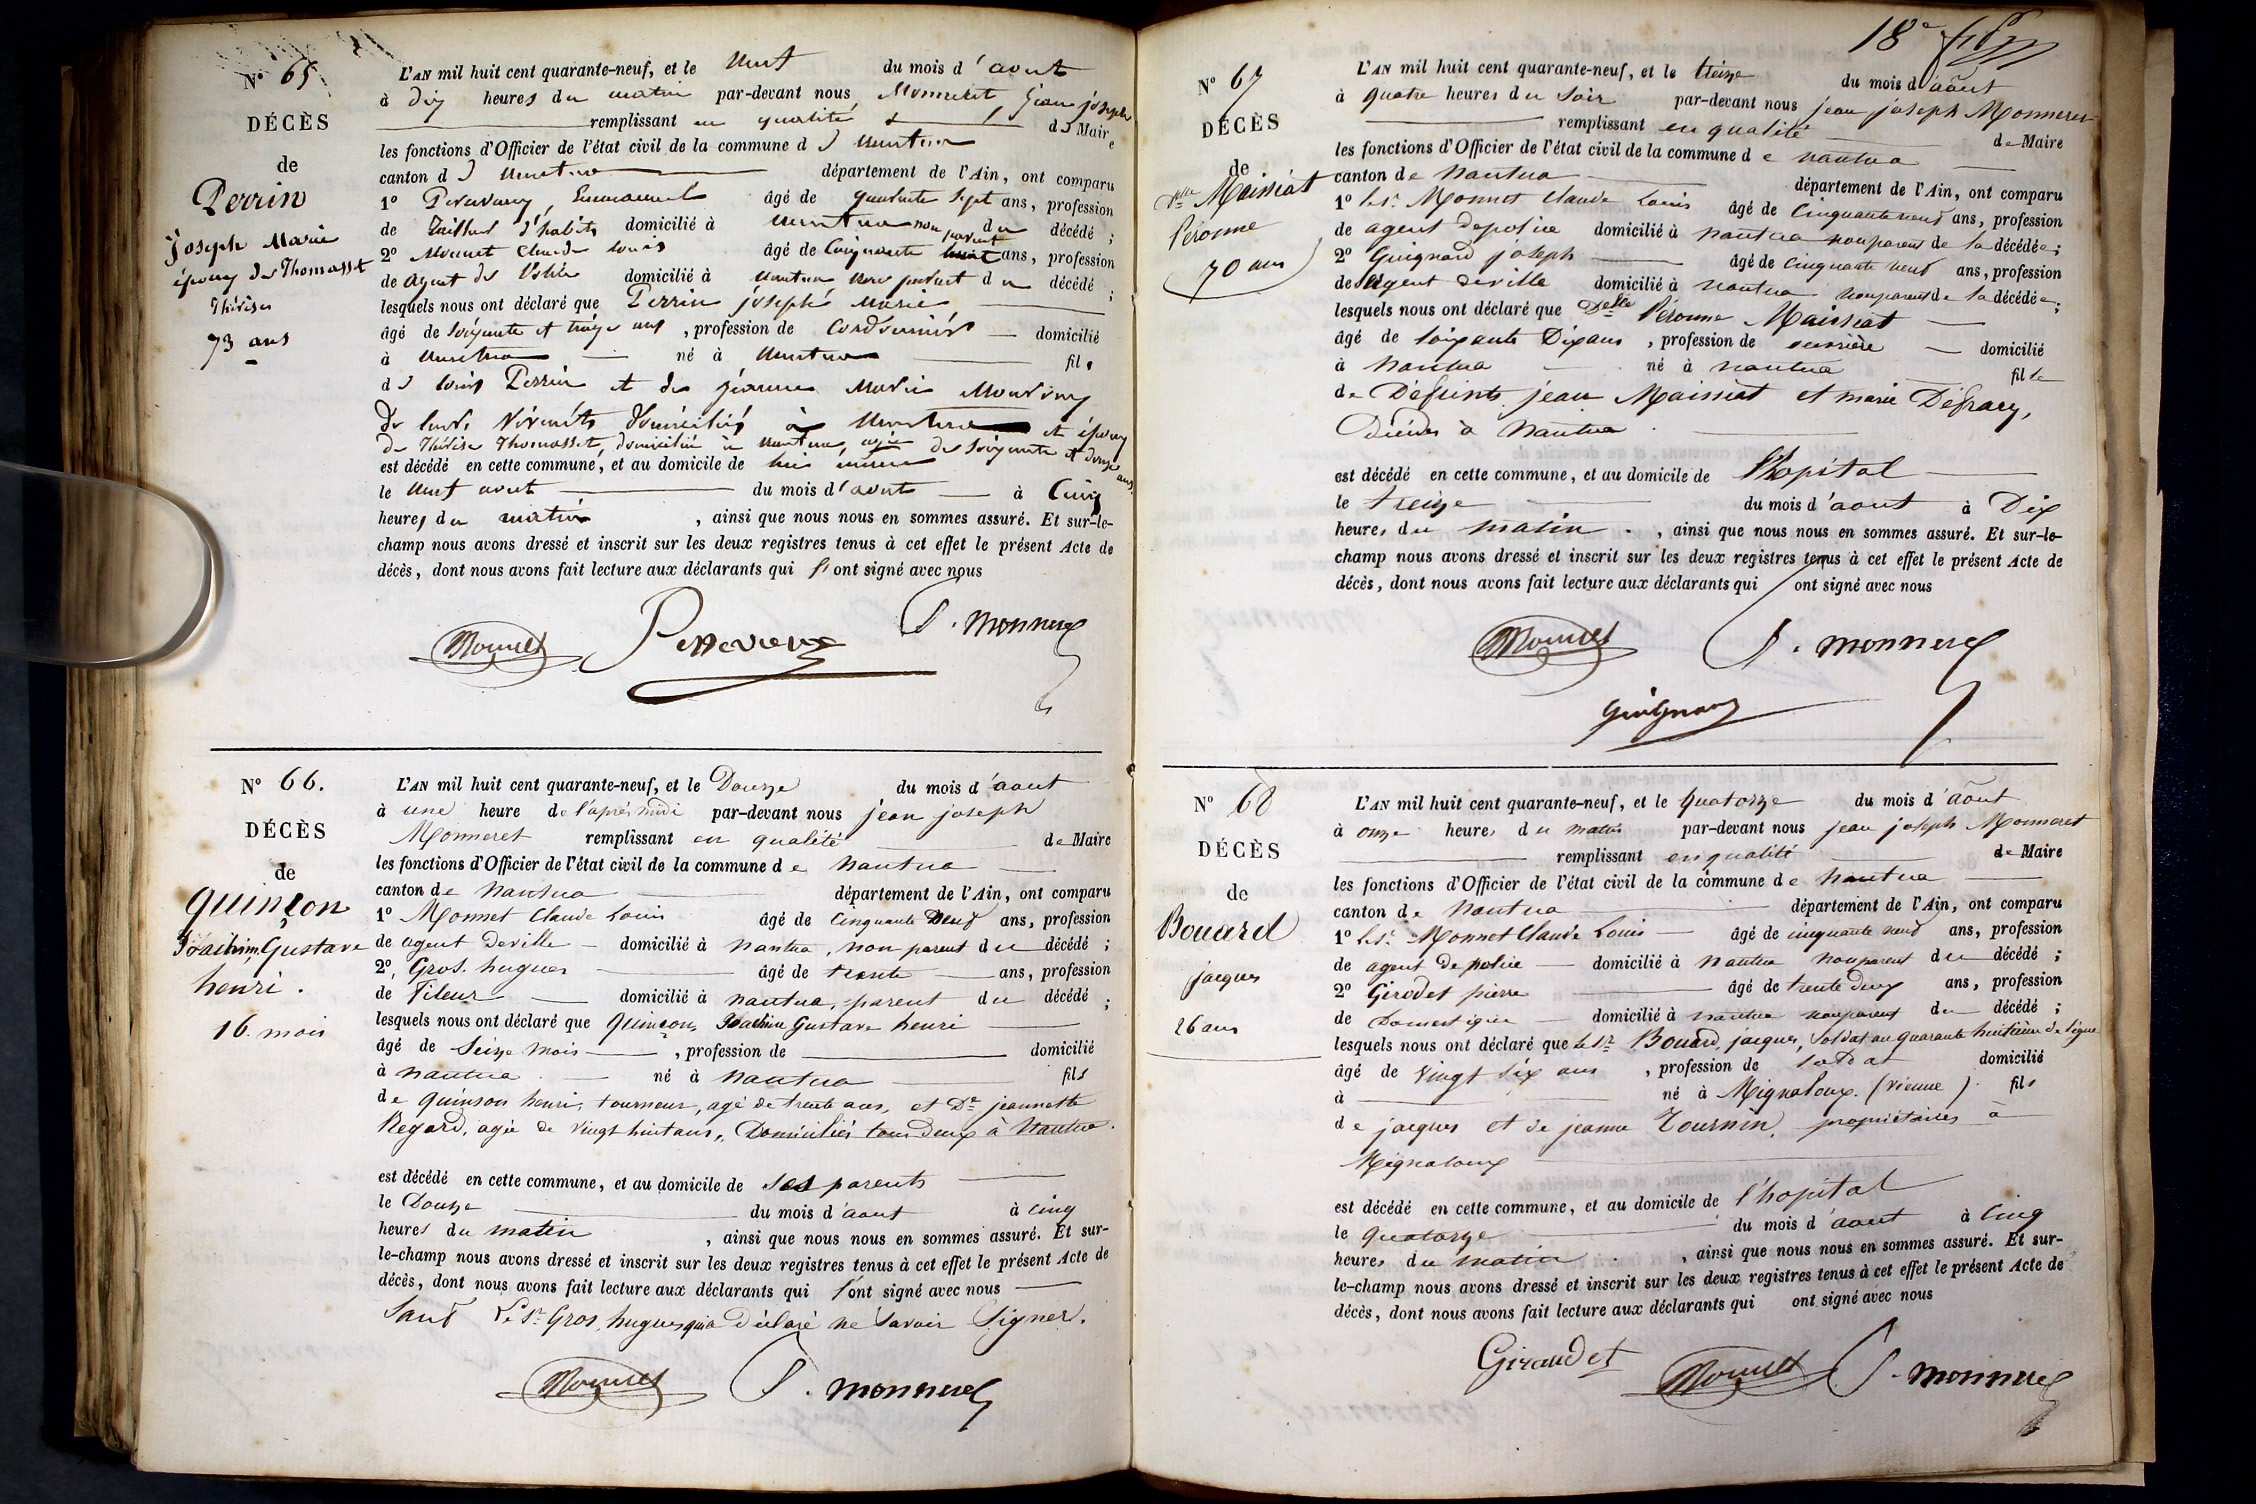 N° 65
DÉCÈS
de
Perrin
Joseph Marie
époux de Thomasset
Thérèse
73 ans
L'AN mil huit cent quarante-neuf, et le neuf du mois d'aout
à dix heures du matin par-devant nous Monneret, Jean joseph
remplissant en qualité de Maire
les fonctions d'Officier de l'état civil de la commune de nantua
canton de nantua département de l'Ain, ont comparu
1° Emmanuel âgé de quarante sept ans, profession
de Tailleur d'habits domicilié à nantua non parent du décédé ;
2° Monnet Claude Louis âgé de Cinquante neuf ans, profession
de agent de Police domicilié à nantua non parent du décédé ;
lesquels nous ont déclaré que Perrin joseph marie
âgé de soixante et treize ans, profession de cordonnier domicilié
à nantua né à nantua fils
de louis Perrin et de jeanne Marie
De leurs vivants Domiciliés à Nantua et époux
de Thérèse Thomasset, domiciliée à nantua, agée de soixante et douze ans.
est décédé en cette commune, et au domicile de lui même
le neuf aout du mois d'aout à Cinq
heures du matin, ainsi que nous nous en sommes assuré. Et sur-le-
champ nous avons dressé et inscrit sur les deux registres tenus à cet effet le présent Acte de
décès, dont nous avons fait lecture aux déclarants qui ont signé avec nous
Monnet J. Monneret
N° 66.
DÉCÈS
de
Quinçon
Joachim, Gustave
henri.
16. mois
L'AN mil huit cent quarante-neuf, et le Douze du mois d'aout
à une heure de l'après midi par-devant nous jean joseph
Monneret remplissant en qualité de Maire
les fonctions d'Officier de l'état civil de la commune de nantua
canton de nantua département de l'Ain, ont comparu
1° Monnet Claude Louis âgé de Cinquante neuf ans, profession
de agent de ville domicilié à nantua, non parent du décédé ;
2°, Gros. hugues âgé de trente ans, profession
de Fileur domicilié à nantua, parent du décédé ;
lesquels nous ont déclaré que Quinçon, Joachim Gustave henri
âgé de Seize mois, profession de domicilié
à nantua né à nantua fils
de Quinson henri, tourneur, agé de trente ans, et De jeannette
Regard, agée de vingt huit ans, Domiciliés tous deux à Nantua.
est décédé en cette commune, et au domicile de ses parents
le Douze du mois d'aout à cinq
heures du matin, ainsi que nous nous en sommes assuré. Et sur-
le-champ nous avons dressé et inscrit sur les deux registres tenus à cet effet le présent Acte de
décès, dont nous avons fait lecture aux déclarants qui l'ont signé avec nous
Sauf Le Sr Gros, hugues qui a Déclaré ne Savoir Signer.
Monnet J. Monneret
18e
N° 67
DÉCÈS
de
Delle Maissiat
Péronne
70 ans
L'AN mil huit cent quarante-neuf, et le treize du mois d'aout
à quatre heures du Soir par-devant nous jean joseph Monneret
remplissant en qualité de Maire
les fonctions d'Officier de l'état civil de la commune de nantua
canton de nantua département de l'Ain, ont comparu
1° le Sr. Monnet Claude Louis âgé de Cinquante neuf ans, profession
de agent de police domicilié à nantua non parent de la décédée ;
2° Guignard joseph âgé de cinquante neuf ans, profession
de sergent de ville domicilié à nantua non parent de la décédée ;
lesquels nous ont déclaré que Delle Péronne Maissiat
âgé de soixante Dix ans, profession de domicilié
à Nantua né à nantua fille
de Défunts jean Maissiat et marie Défrary,
Décédés à Nantua.
est décédé en cette commune, et au domicile de l'hopital
le treize du mois d'aout à Dix
heures du matin, ainsi que nous nous en sommes assuré. Et sur-le-
champ nous avons dressé et inscrit sur les deux registres tenus à cet effet le présent Acte de
décès, dont nous avons fait lecture aux déclarants qui ont signé avec nous
Monnet J. Monneret
Guignard
N° 68
DÉCÈS
de
Bouard
jacques
26 ans
L'AN mil huit cent quarante-neuf, et le quatorze du mois d'aout
à onze heures du matin par-devant nous jean joseph Monneret
remplissant en qualité de Maire
les fonctions d'Officier de l'état civil de la commune de nantua
canton de nantua département de l'Ain, ont comparu
1° le Sr. Monnet Claude Louis âgé de cinquante neuf ans, profession
de agent de police domicilié à nantua non parent du décédé ;
2° Girodet pierre âgé de trente deux ans, profession
de Domestique domicilié à nantua non parent du décédé ;
lesquels nous ont déclaré que le Sr. Bouard, jacques, Soldat au quarante huitième de ligne
âgé de vingt six ans, profession de soldat domicilié
à né à Mignaloux (Vienne). fils
de jacques et de jeanne Tournin, propriétaires à
Mignaloux
est décédé en cette commune, et au domicile de l'hopital
le quatorze du mois d'aout à Cinq
heures du matin, ainsi que nous nous en sommes assuré. Et sur-
le-champ nous avons dressé et inscrit sur les deux registres tenus à cet effet le présent Acte de
décès, dont nous avons fait lecture aux déclarants qui ont signé avec nous
Giraudet Monnet J. Monneret